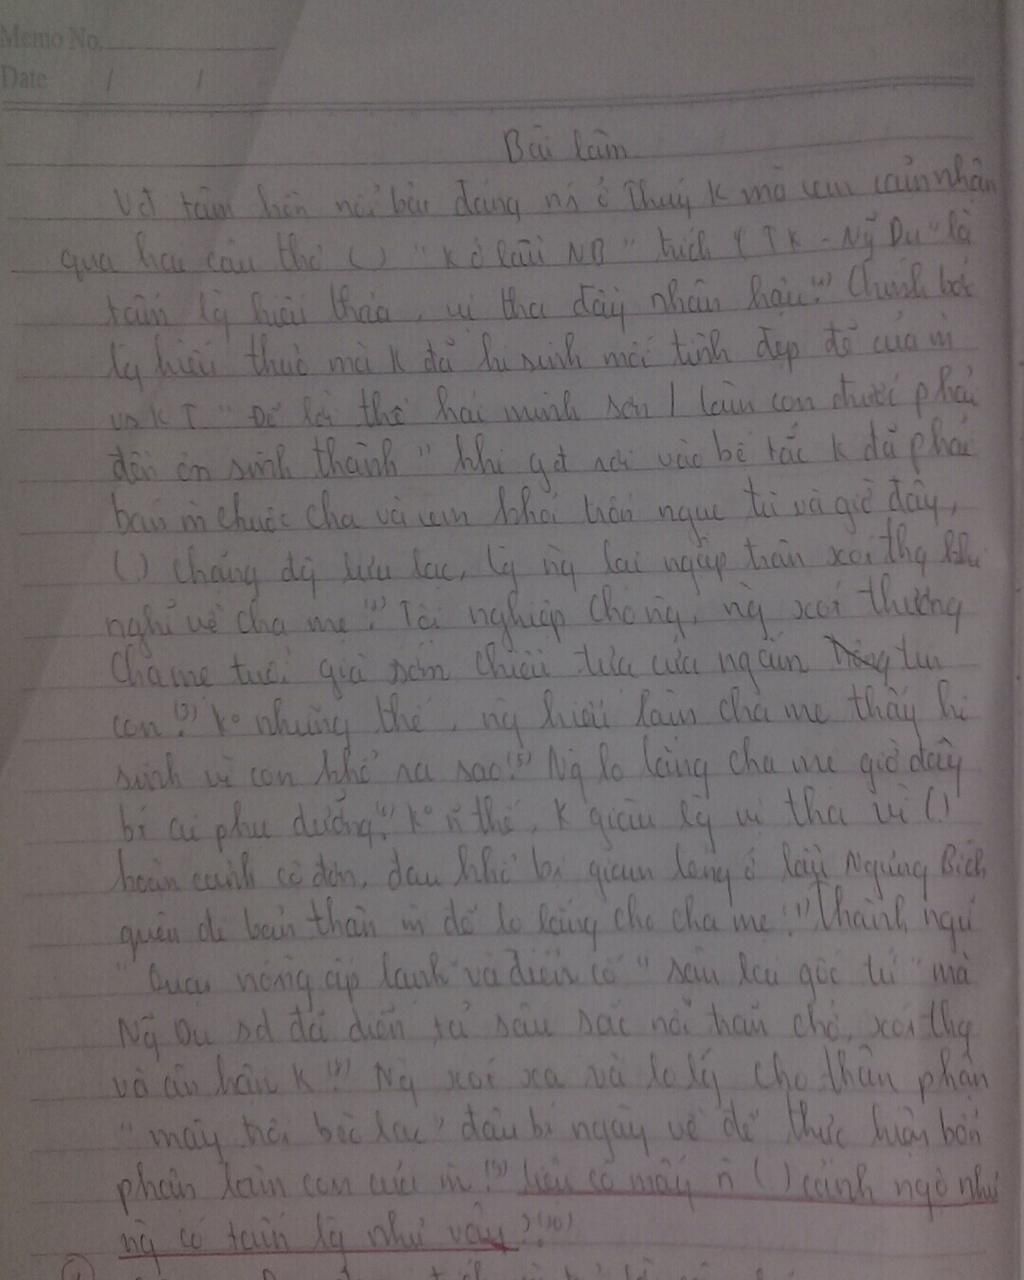 Memo No.
Date / /
Bài làm
tâm hồn nổi bật đáng ở Thúy K mà em cảm nhận
qua câu thơ ( ) "K ở lầu NB" trích "TK - Ng~ Du" là
tấm lg hiếu thảo, vị tha đầy nhân hậu. (1) Chính bởi
lg hiếu thảo mà K đã hi sinh mối tình đẹp đẽ của m
K T. "Để lời thề hải minh sơn / làm con trước phải
đền ơn sinh thành" khi gđ rơi vào bế tắc K đã phải
bán m chuộc cha và em khỏi ngục tù và giờ đây,
( ) lưu lạc, lg ng lại ngập tràn xót thg khi
nghĩ về cha mẹ. (2) Tội nghiệp cho ng, ng xót thương
cha mẹ tuổi già sớm chiều tựa cửa ngóng tin
con. (3) ko những thế, ng hiểu làm cha mẹ thấy hi
sinh vì con khổ ra sao. (5) Ng lo lắng cha mẹ giờ đây
ai phụ dưỡng. (6) ko n~ thế, K giàu lg vị tha vì ( )
hoàn cảnh cô đơn, đau khổ bị giam lỏng ở lầu Ngưng Bích
quên đi bản thân m để lo lắng cho cha mẹ. (7) Thành ngữ
"Quạt nồng ấp lạnh" và điển cố "sân lai gốc tử" mà
Ng~ Du sd đã diễn tả sâu sắc nỗi trăn chở, xót thg
và ân hận K (8) Ng xót xa và lo lg cho thân phận
"mây trôi bèo lạc" đâu ngày về để thực hiện bổn
phận làm con của m. (9) liệu có mấy n ( ) cảnh ngộ như
ng có tấm lg như vậy? (10)